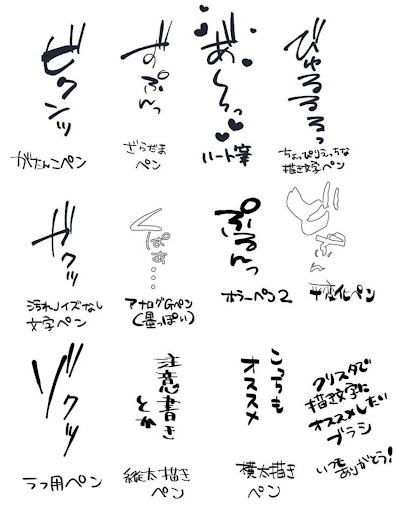 ビクンッ
がたんこペン
ずぷんっ
ざらだま
ペン
あ〜〜っ
ハート筆
びゅるるるるっ
ちょっぴりえっちな
描き文字ペン
ガクッ
汚れノイズなし
文字ペン
くぱぁ…
アナログGペン
(墨っぽい)
ぷるんっ
ホラーペン2
ペン
ゾクッ
ラフ用ペン
注意書き
とか
縦太描き
ペン
こっちも
オススメ
横太描き
ペン
クリスタで
描き文字に
オススメしたい
ブラシ
いつもありがとう!